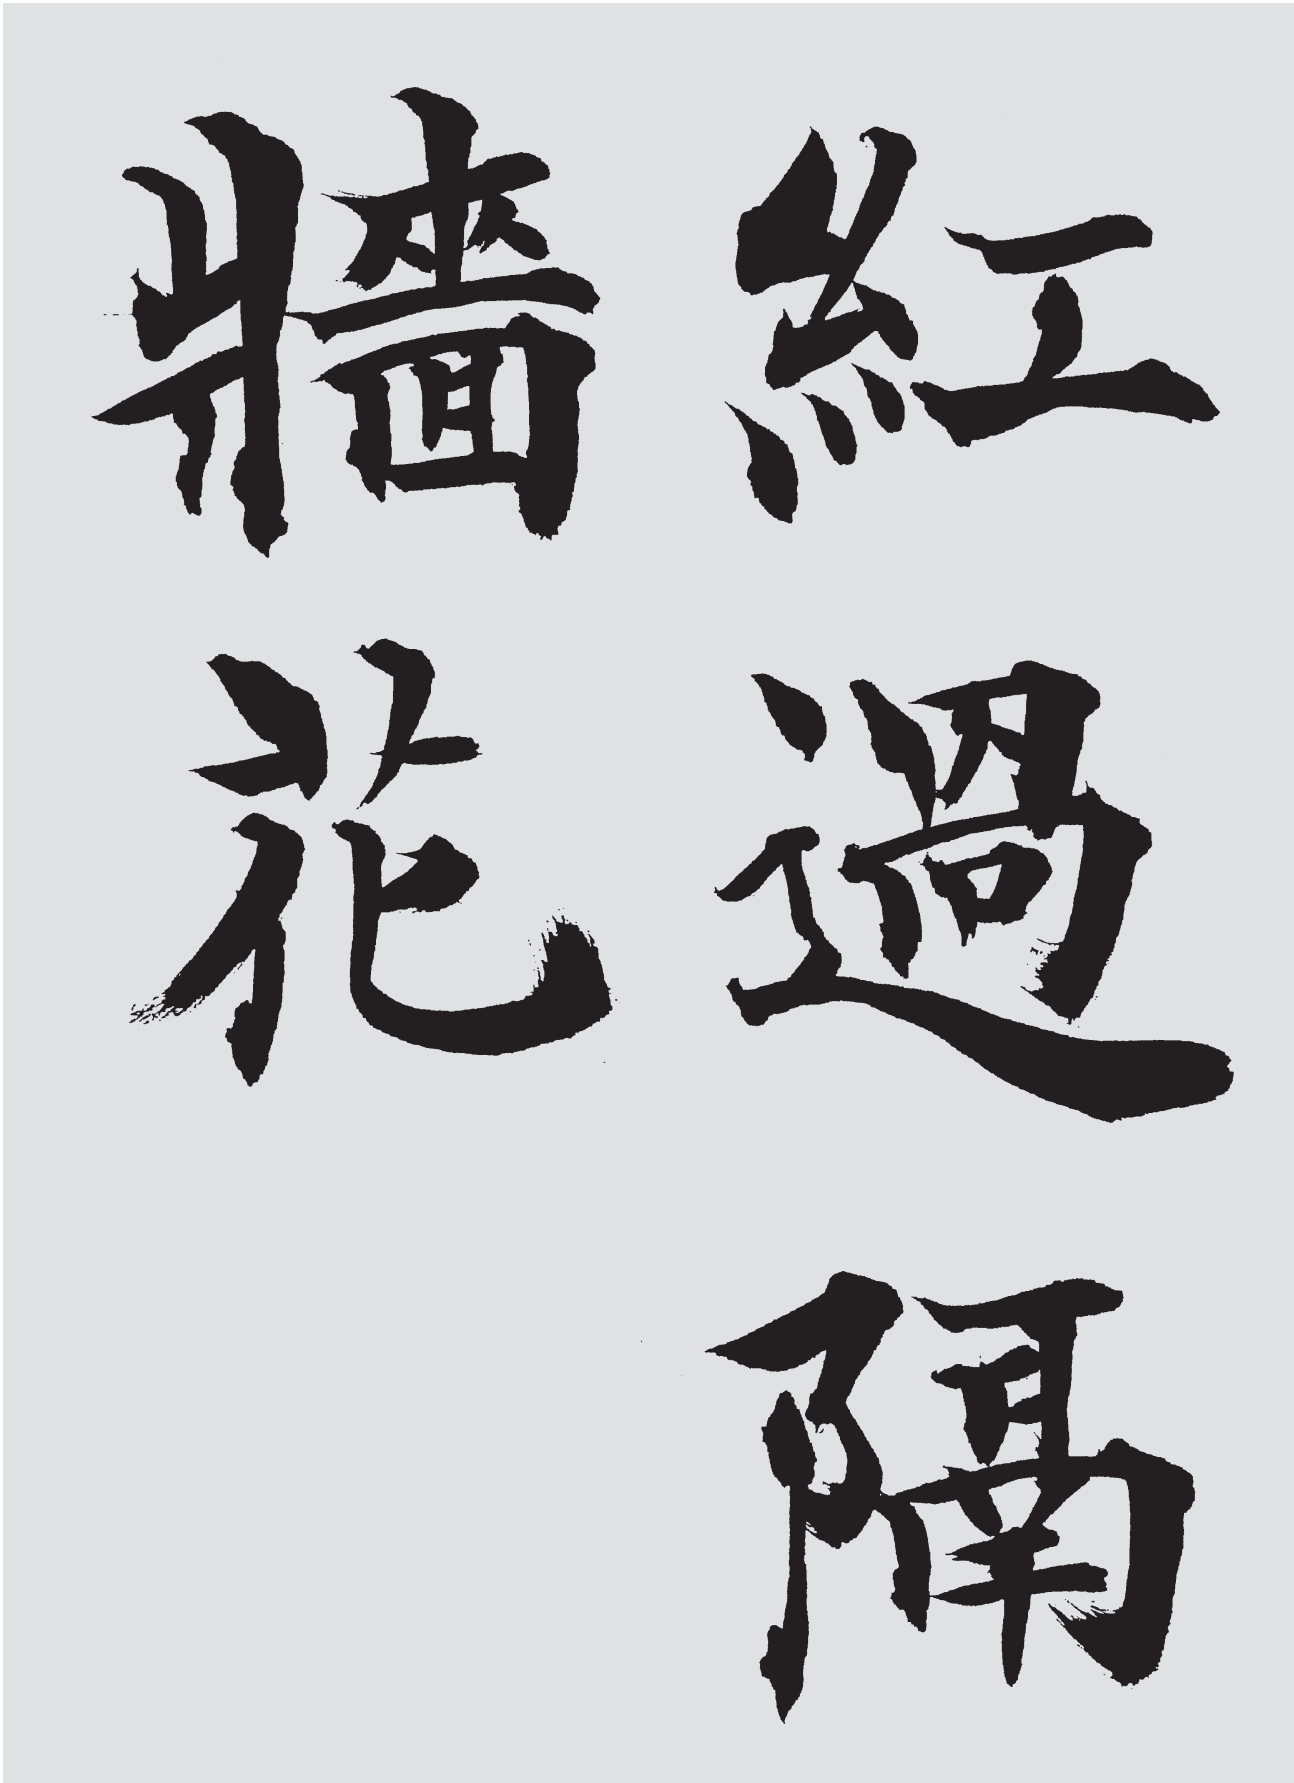 紅過隔
牆花